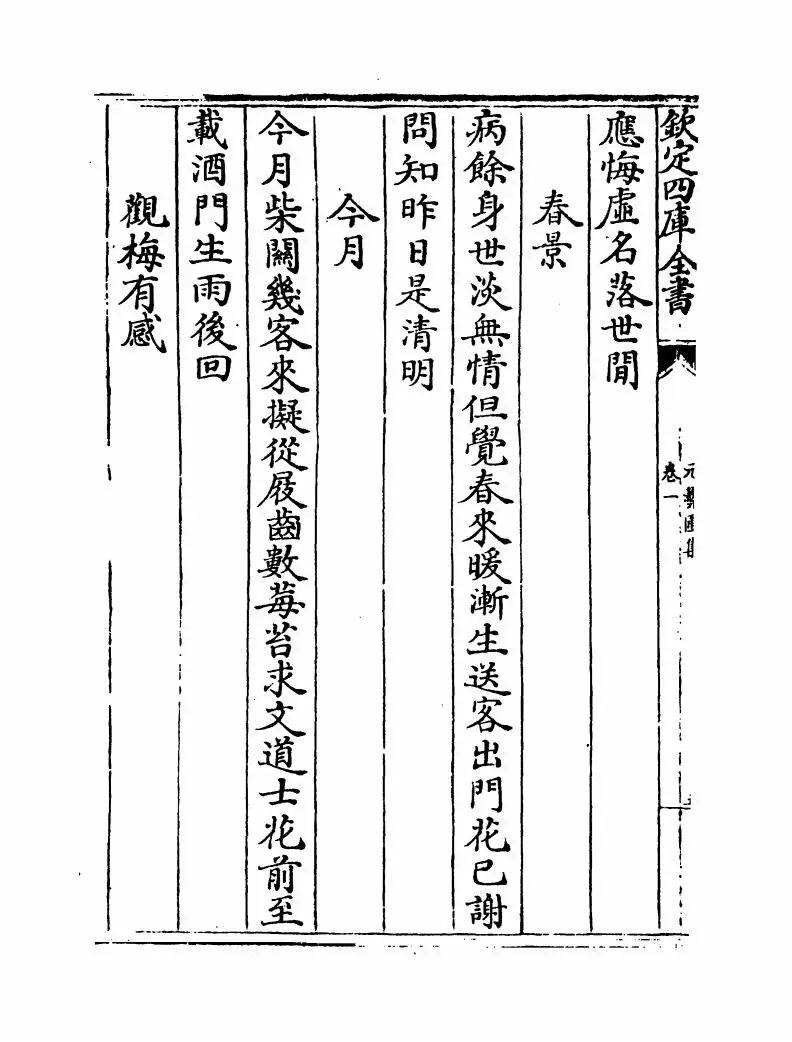 欽定四庫全書
卷一
應悔虛名落世間
春景
病餘身世淡無情但覺春來暖漸生送客出門花已謝
問知昨日是清明
今月
今月柴關幾客來擬從屐齒數莓苔求文道士花前至
載酒門生雨後回
觀梅有感